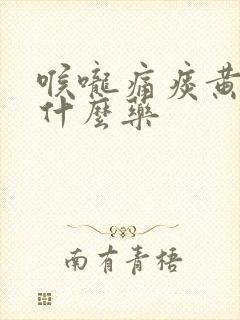 喉嚨痛痰黃
什麼藥
南有青梧